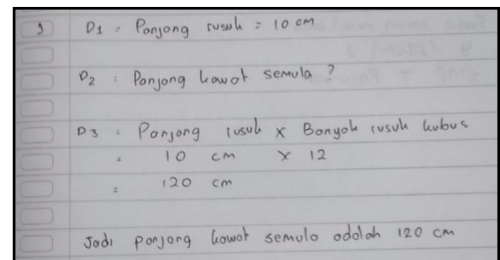 1 D1 = Panjang rusuk = 10 cm
D2 : Panjang kawat semula ?
D3 : Panjang rusuk x Banyak rusuk kubus
= 10 cm x 12
= 120 cm
Jadi panjang kawat semula adalah 120 cm